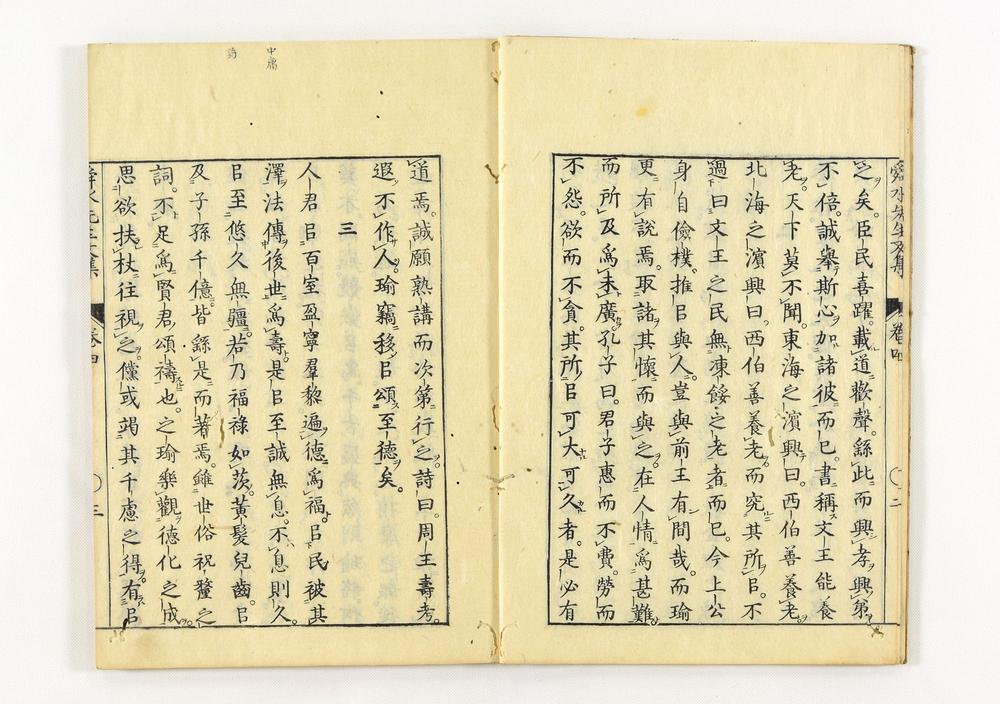 舜水先生文集　卷四　〇二
之矣。臣民喜躍。載道歡聲。繇此而興孝興弟。
不倍。誠舉斯心加諸彼而已。書稱文王能養
老。天下莫不聞。東海之濱興曰。西伯善養老。
北海之濱興曰。西伯善養老而究其所㠯。不
過曰文王之民無凍餒之老者而已。今上公
身自儉樸。推㠯與人。豈與前王有間哉。而瑜
更有說焉。取諸其懷而與之。在人情爲甚難。
而所及爲未廣。孔子曰。君子惠而不費。勞而
不怨。欲而不貪。其所㠯可大可久者。是必有
道焉。誠願熟講而次第行之。詩曰。周王壽考。
遐不作人。瑜竊移㠯頌至德矣。
三
人君㠯百室盈寧羣黎遍德爲福。㠯民被其
澤法傳後世爲壽。是㠯至誠無息。不息則久。
㠯至悠久無疆。若乃福祿如茨。黃髮兒齒。㠯
及子孫千億。皆繇是而著焉。雖世俗祝釐之
詞。不足爲賢君頌禱也。之瑜樂觀德化之成。
思欲扶杖往視之。儻或竭其千慮之得。有㠯
舜水先生文集　卷四　〇三
中庸
詩